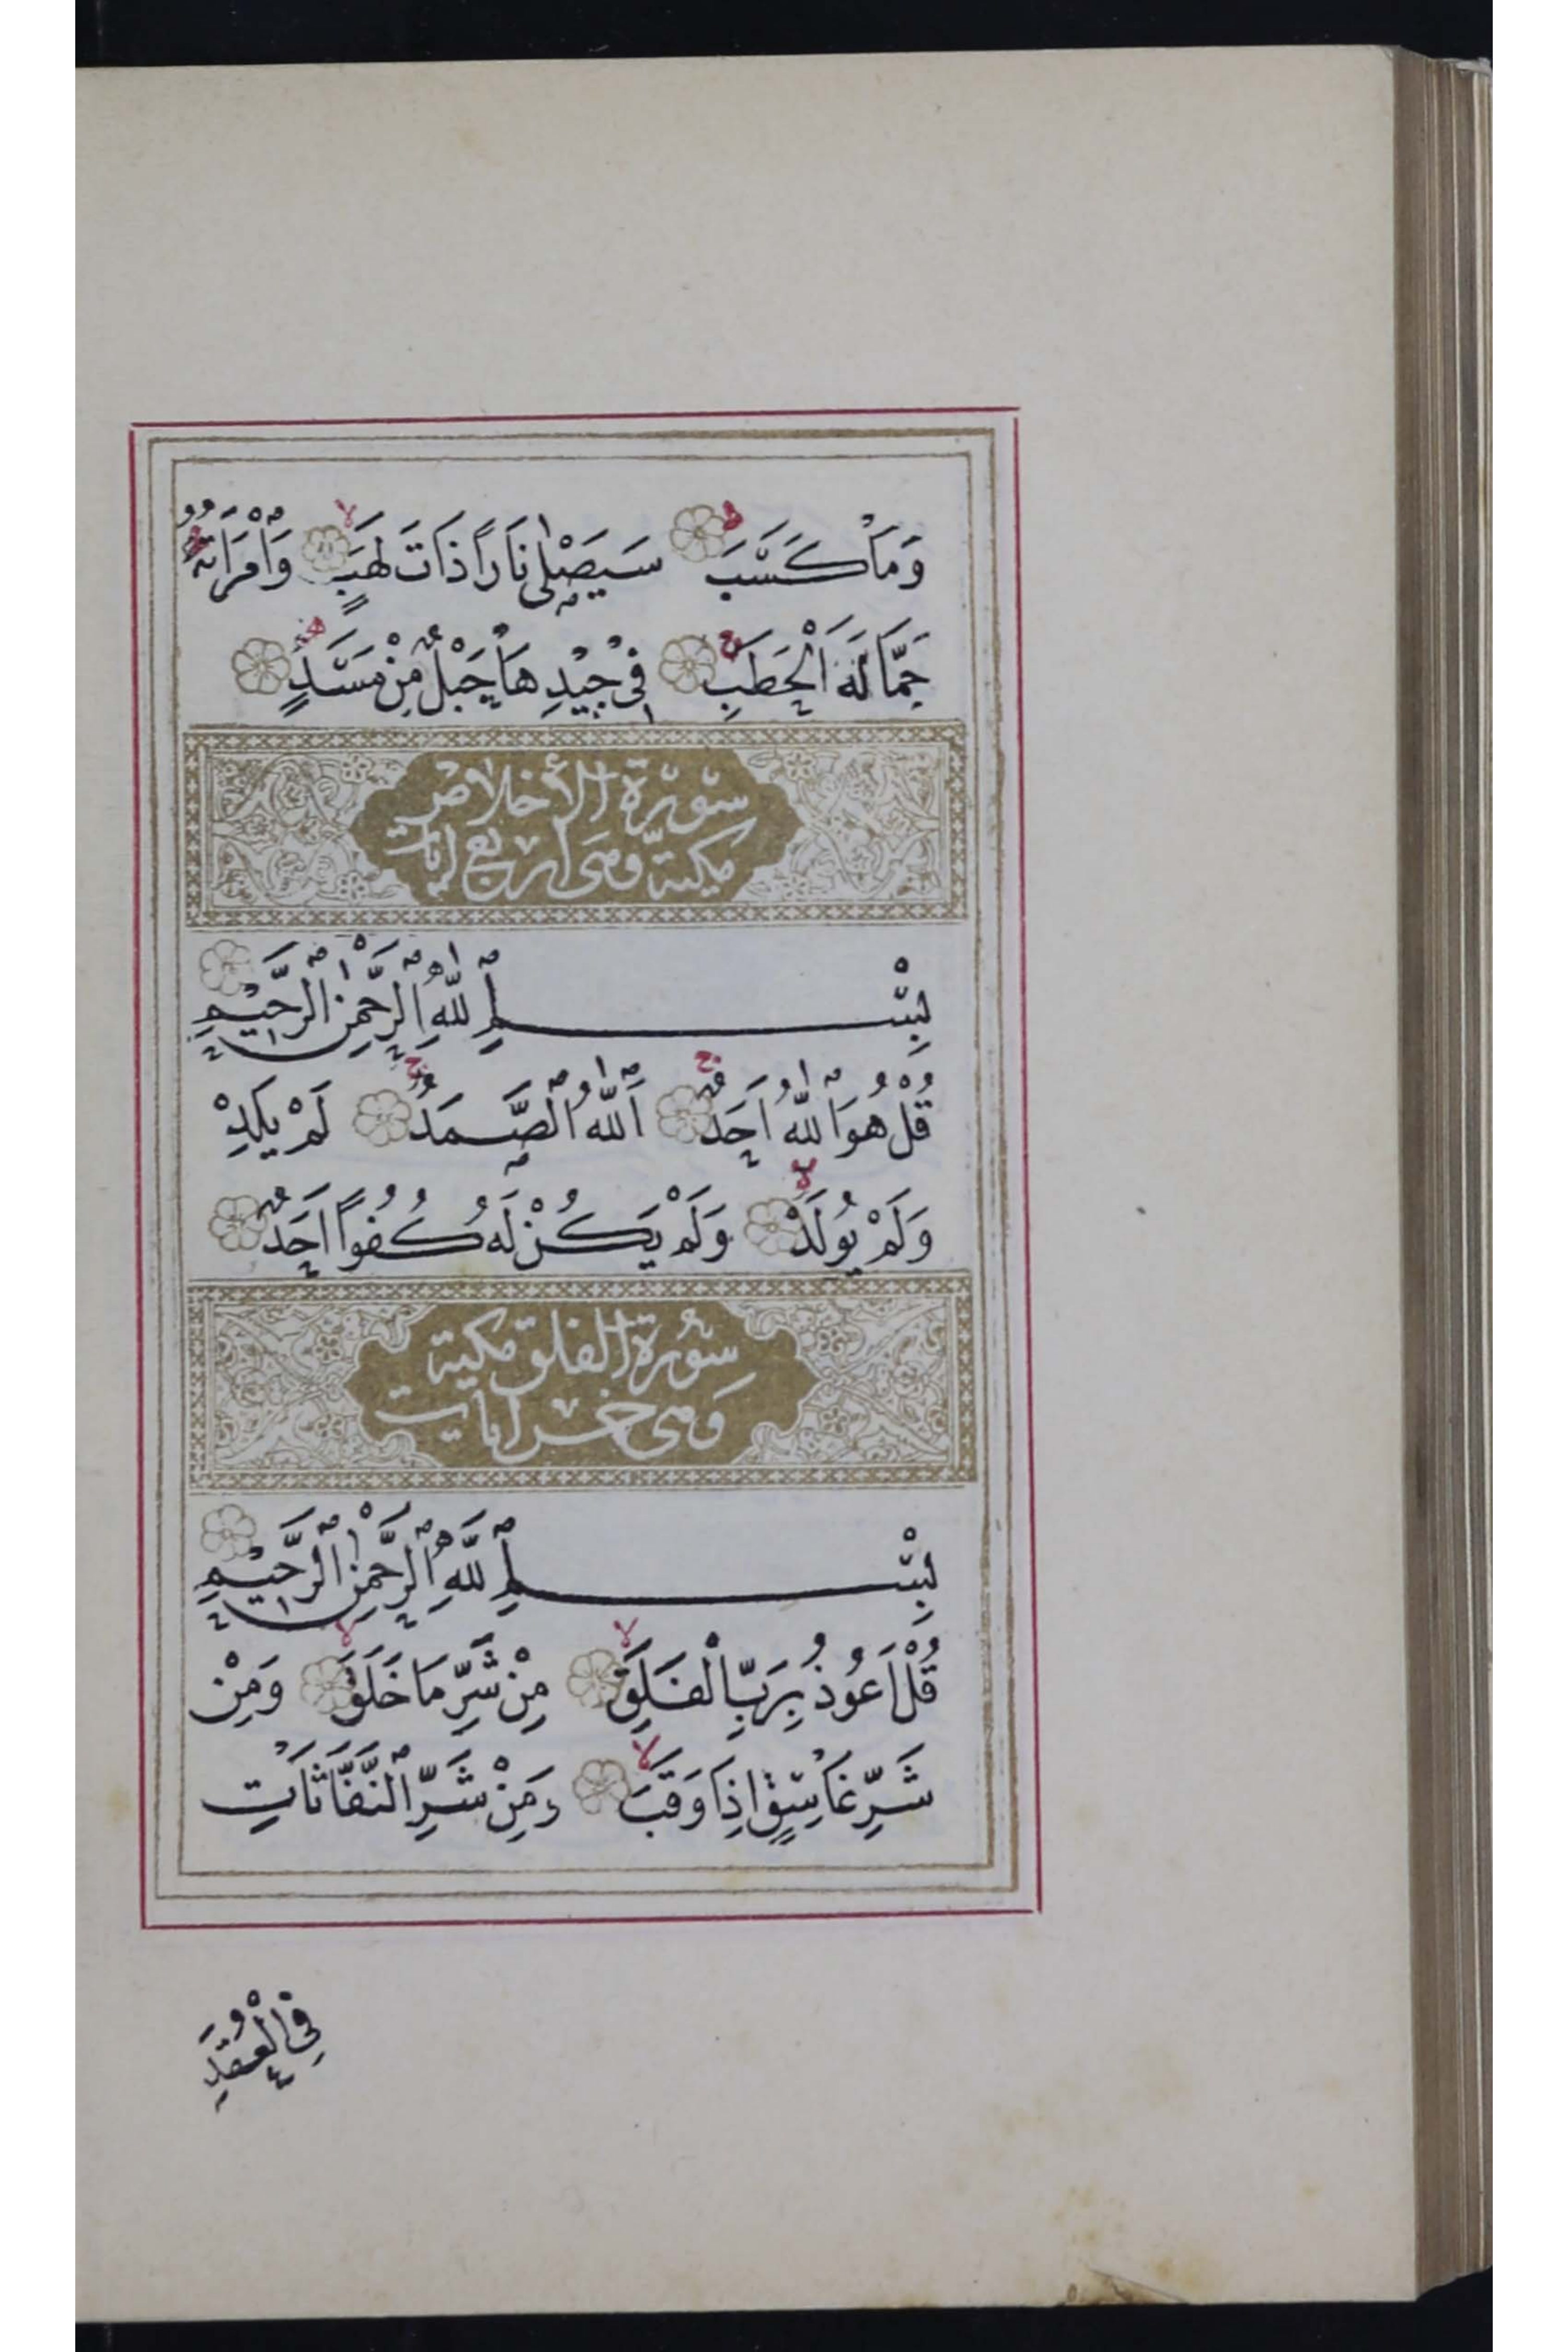 وَمَا كَسَبَ سَيَصْلٰى نَارًا ذَاتَ لَهَبٍ وَامْرَاَتُهُ
حَمَّالَةَ الْحَطَبِ فِى جِيْدِهَا حَبْلٌ مِنْ مَسَدٍ
سورة الأخلاص
مكية وهى اربع ايات
بِسْمِ اللّٰهِ الرَّحْمٰنِ الرَّحِيْمِ
قُلْ هُوَ اللّٰهُ اَحَدٌ اَللّٰهُ الصَّمَدُ لَمْ يَلِدْ
وَلَمْ يُولَدْ وَلَمْ يَكُنْ لَهُ كُفُوًا اَحَدٌ
سورة الفلق مكية
وهى خمس ايات
بِسْمِ اللّٰهِ الرَّحْمٰنِ الرَّحِيْمِ
قُلْ اَعُوذُ بِرَبِّ الْفَلَقِ مِنْ شَرِّ مَا خَلَقَ وَمِنْ
شَرِّ غَاسِقٍ اِذَا وَقَبَ وَمِنْ شَرِّ النَّفَّاثَاتِ
فِى الْعُقَدِ